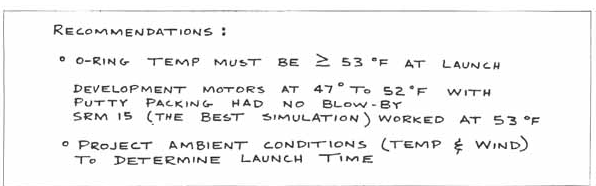 RECOMMENDATIONS :
° O-RING TEMP MUST BE ≥ 53 °F AT LAUNCH
DEVELOPMENT MOTORS AT 47° TO 52°F WITH
PUTTY PACKING HAD NO BLOW-BY
SRM 15 (THE BEST SIMULATION) WORKED AT 53 °F
° PROJECT AMBIENT CONDITIONS (TEMP & WIND)
TO DETERMINE LAUNCH TIME